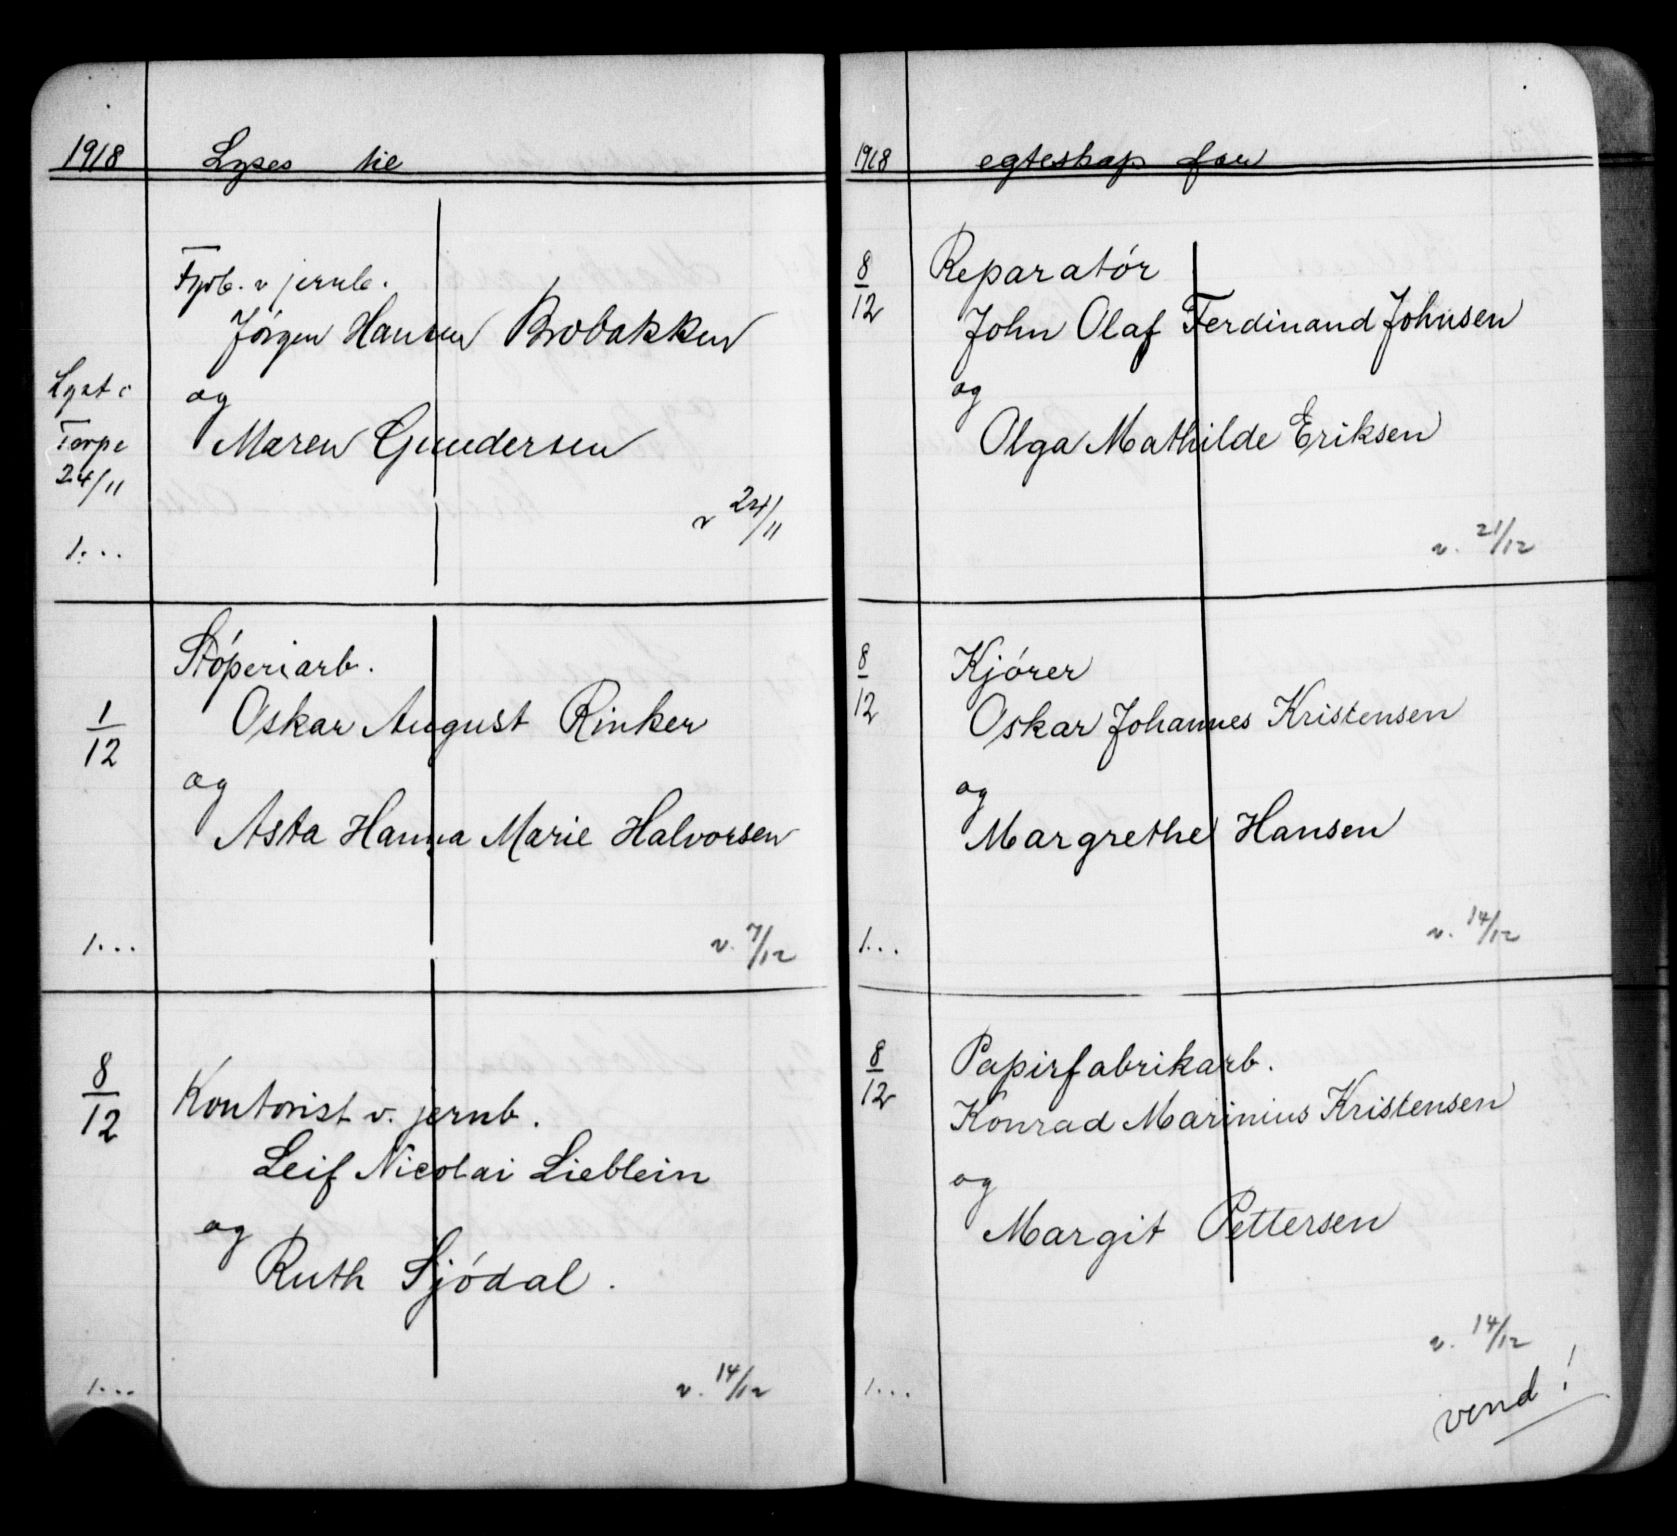 1918 Lyses til
Fyrb. v jernb.
Jörgen Hansen Brobakken
Lyst i
og
Torpe
Maren Gundersen
24/11
v 24/11
1...
Stóperiarb.
1/12
Oskar August Rinker
og
Asta Hanna Marie Halvorsen
1...
v. 7/12
8/12
Kontorist v. jernb.
Leif Nicolai Lieblein
og
Ruth Sjódal.
1...
v. 14/12
1918 egteskap for
8/12
Reparatór
John Olaf Ferdinand Johnsen
og
Olga Mathilde Eriksen
v. 21/12
8/12
Kjórer
Oskar Johannes Kristensen
og
Margrethe Hansen
1...
v. 14/12
8/12
Papirfabrikarb.
Konrad Marinius Kristensen
og
Margit Pettersen
v. 14/12
1...
vend!